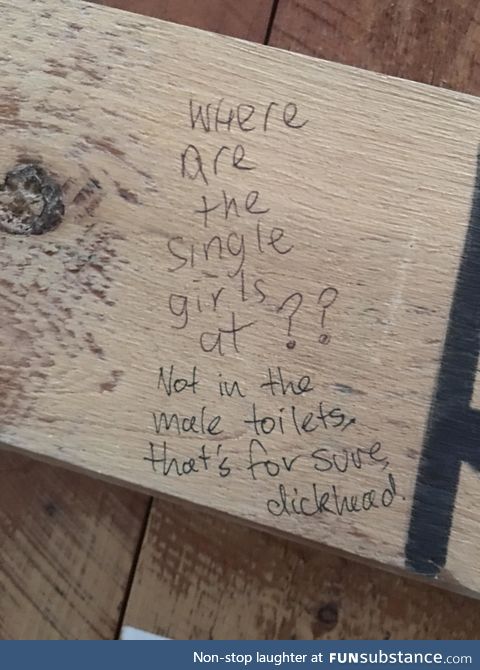 WHere
are
the
single
girls
at ??
Not in the
male toilets,
that's for sure,
dickhead.
Non-stop laughter at FUNsubstance.com